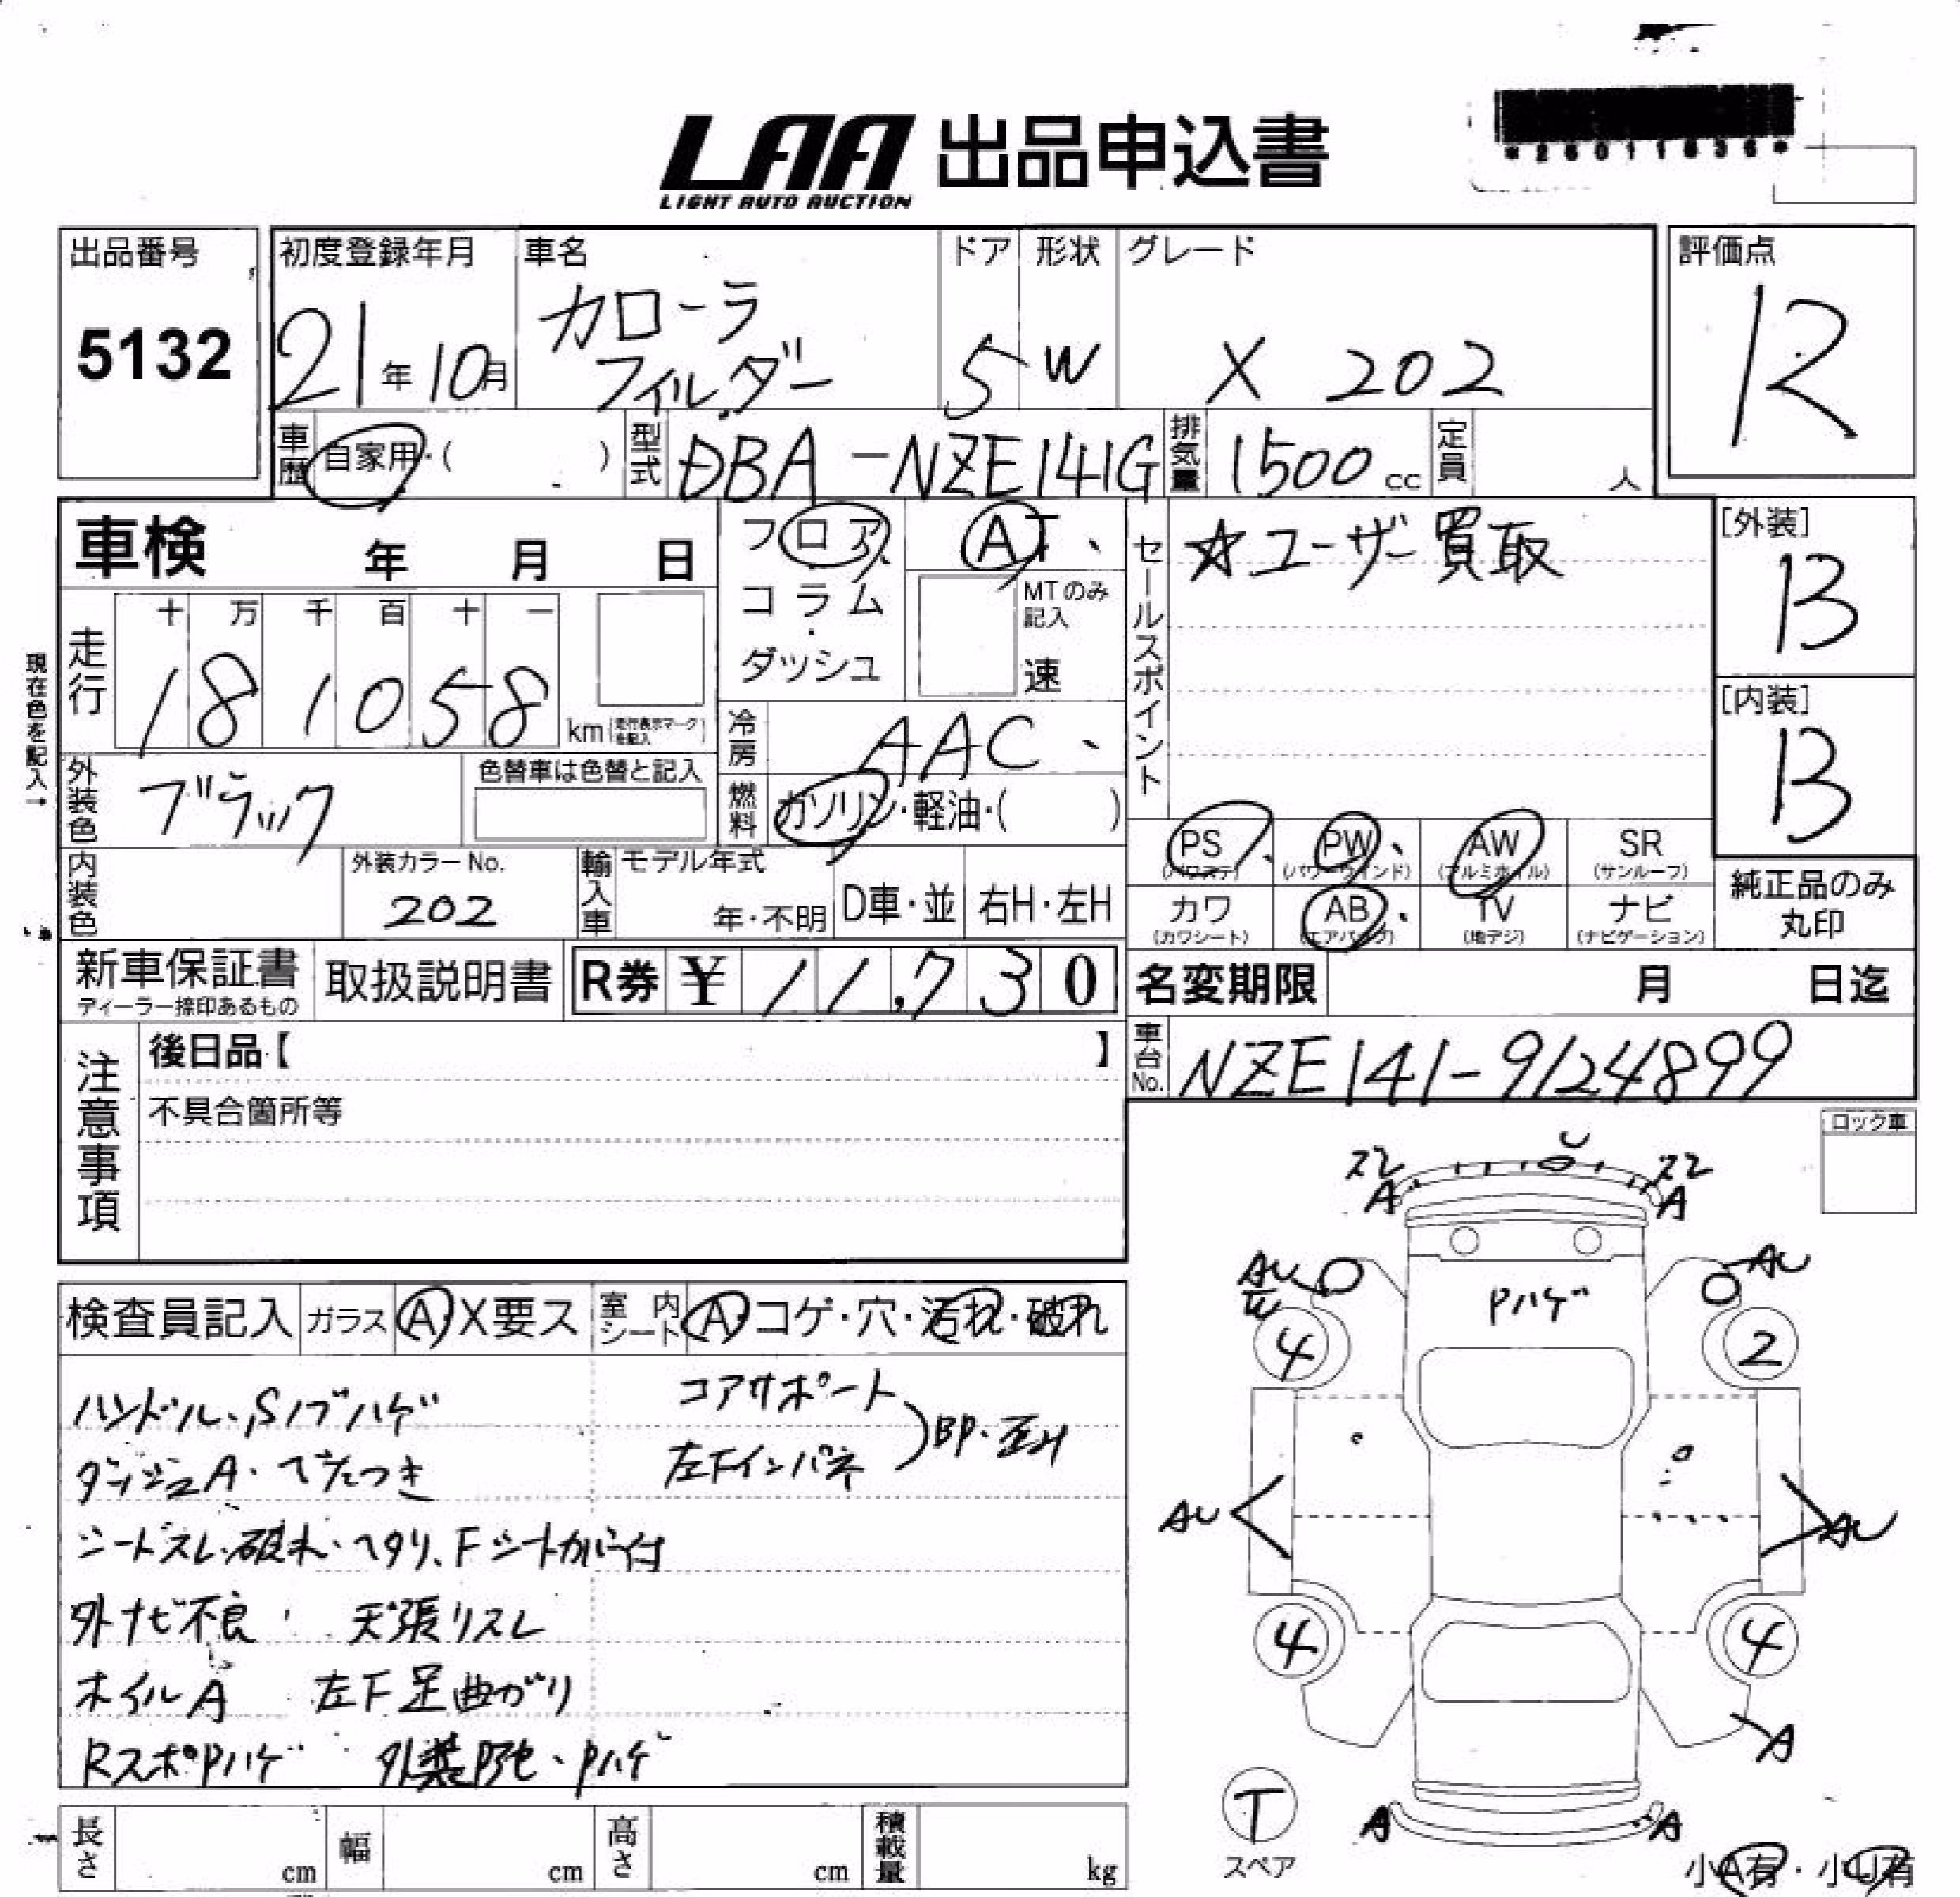 LAA 出品申込書
LIGHT AUTO AUCTION
出品番号
5132
初度登録年月
21年10月
車名
カローラ
フィルダー
ドア
5
形状
W
グレード
X 202
評価点
R
車歴
自家用・( )
型式
DBA-NZE141G
排気量
1500cc
定員
人
車検 年 月 日
フロア
コラム
・
ダッシュ
AT、
MTのみ
記入
速
セールスポイント
☆ユーザー買取
[外装]
B
[内装]
B
現在色を記入→
走行
十 万 千 百 十 一
1 8 1 0 5 8
km(走行表示マークを記入)
冷房
AAC、
外装色
ブラック
色替車は色替と記入
燃料
ガソリン・軽油・( )
内装色
外装カラーNo.
202
輸入車
モデル年式
年・不明
D車・並
右H・左H
PS
(パワステ)
PW
(パワーウインド)
AW
(アルミホイル)
SR
(サンルーフ)
カワ
(カワシート)
AB
(エアバック)
TV
(地デジ)
ナビ
(ナビゲーション)
純正品のみ
丸印
新車保証書
ディーラー捺印あるもの
取扱説明書
R券 ¥ 11,730
名変期限 月 日迄
車台No.
NZE141-9124899
注意事項
後日品【 】
不具合箇所等
ロック車
検査員記入
ガラス
A・X要ス
室内シート
A・コゲ・穴・汚れ・破れ
ハンドル、Sノブハゲ
コアサポート
ダッシュA・べたつき
左Fインパネ
シートスレ・破れ・ヘタリ、Fシートカバー付
外ナビ不良
天張リスレ
ホイルA
左F足曲がり
RスポPハゲ
外装P色・Pハゲ
U
A
A
AU
AU
Pハゲ
4
2
AU
AU
4
4
A
T
スペア
A
A
小A有・小U有
長さ
cm
幅
cm
高さ
cm
積載量
kg